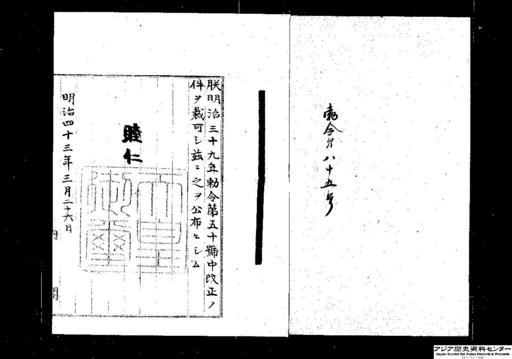 勅令第八十五号
朕明治三十九年勅令第五十號中改正ノ
件ヲ裁可シ茲ニ之ヲ公布セシム
睦仁
天皇御璽
明治四十三年三月二十六日
内閣
アジア歴史資料センター
Japan Center for Asian Historical Records